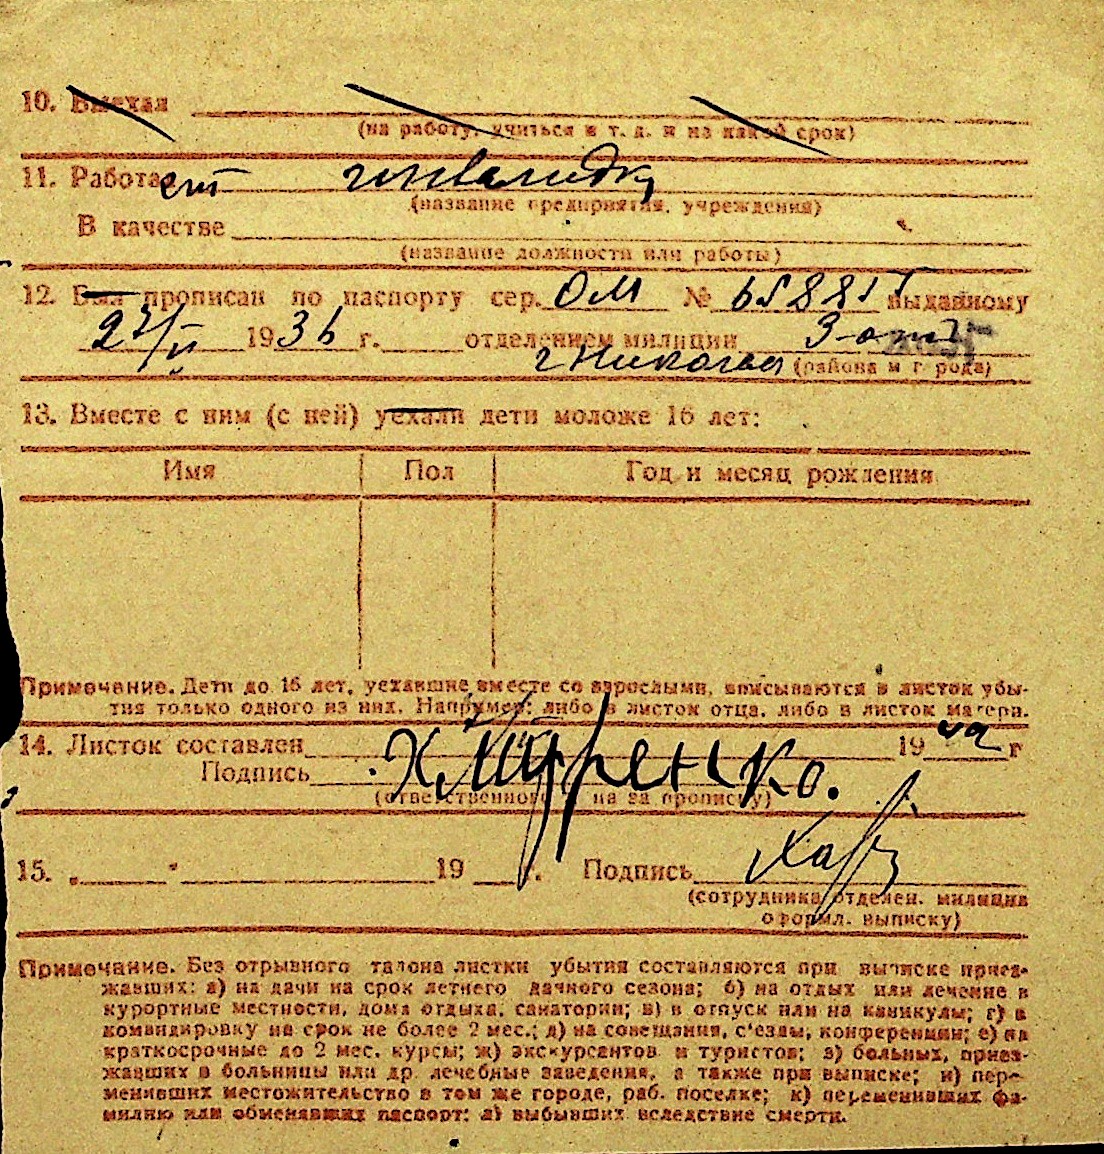 10. Выехал
(на работу, учиться и т. д. и на какой срок)
11. Работает инвалидка
(название предприятия, учреждения)
В качестве
(название должности или работы)
12. Был прописан по паспорту сер. ОМ № выданному
1936 г. отделением милиции 3-
г Николаев (района и г рода)
13. Вместе с ним (с ней) уехали дети моложе 16 лет:
Имя Пол Год и месяц рождения
Примечание. Дети до 16 лет, уехавшие вместе со взрослыми, вписываются в листок убы-
тия только одного из них. Например: либо в листок отца, либо в листок матери.
14. Листок составлен 19 г
Подпись
(ответственного на за прописку)
15. „ " 19 г. Подпись
(сотрудника отделен. милиции
оформл. выписку)
Примечание. Без отрывного талона листки убытия составляются при выписке приез-
жавших: а) на дачи на срок летнего дачного сезона; б) на отдых или лечение в
курортные местности, дома отдыха, санатории; в) в отпуск или на каникулы; г) в
командировку на срок не более 2 мес.; д) на совещания, с'езды, конференции; е) на
краткосрочные до 2 мес. курсы; ж) экскурсантов и туристов; з) больных, приез-
жавших в больницы или др. лечебные заведения, а также при выписке; и) пере-
менивших местожительство в том же городе, раб. поселке; к) переменивших фа-
милию или обменявших паспорт; л) выбывших вследствие смерти.